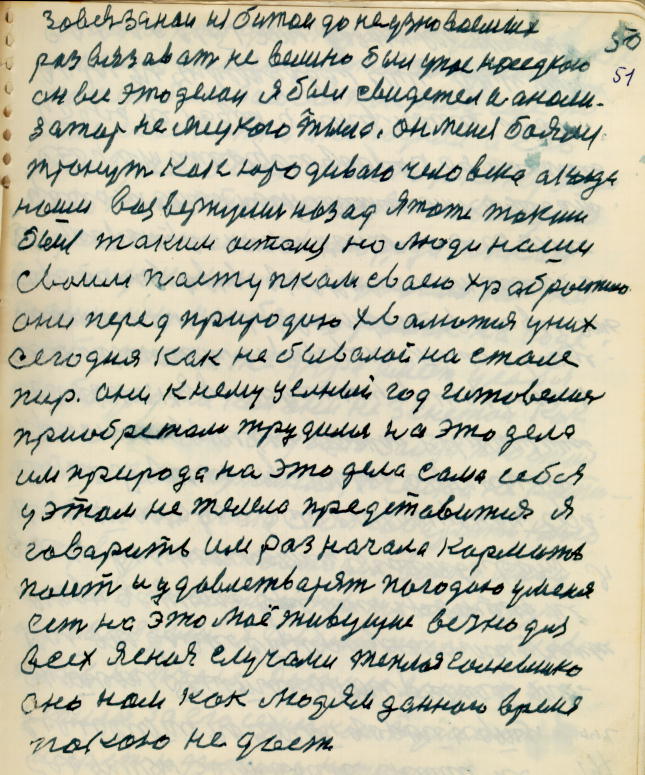 50
51
завязаной избитой до неузноваемых
развязават не велено был уже нередкою
он все это делал я был свидетел и анали-
затор не мецкого тыла. он меня боялся
тронут как юродиваго человека а когда
наши возвернулис назад я тоже таким
был таким остался но люди наши
своим паступкам сваею храбростию
они перед природаю хвалются у них
сегодня как не бывалой на столе
пир. они к нему целный год готовелися
приобретали трудилис на это дела
им природа на это дела сама себя
у этом не желела предстовится я
говарить им раз начала кормить
паит и удовлетварят погодаю у меня
ест на это моё живущие вечно для
всех ясная случами теплая солнышко
оно нам как людям данного время
пакою не дает